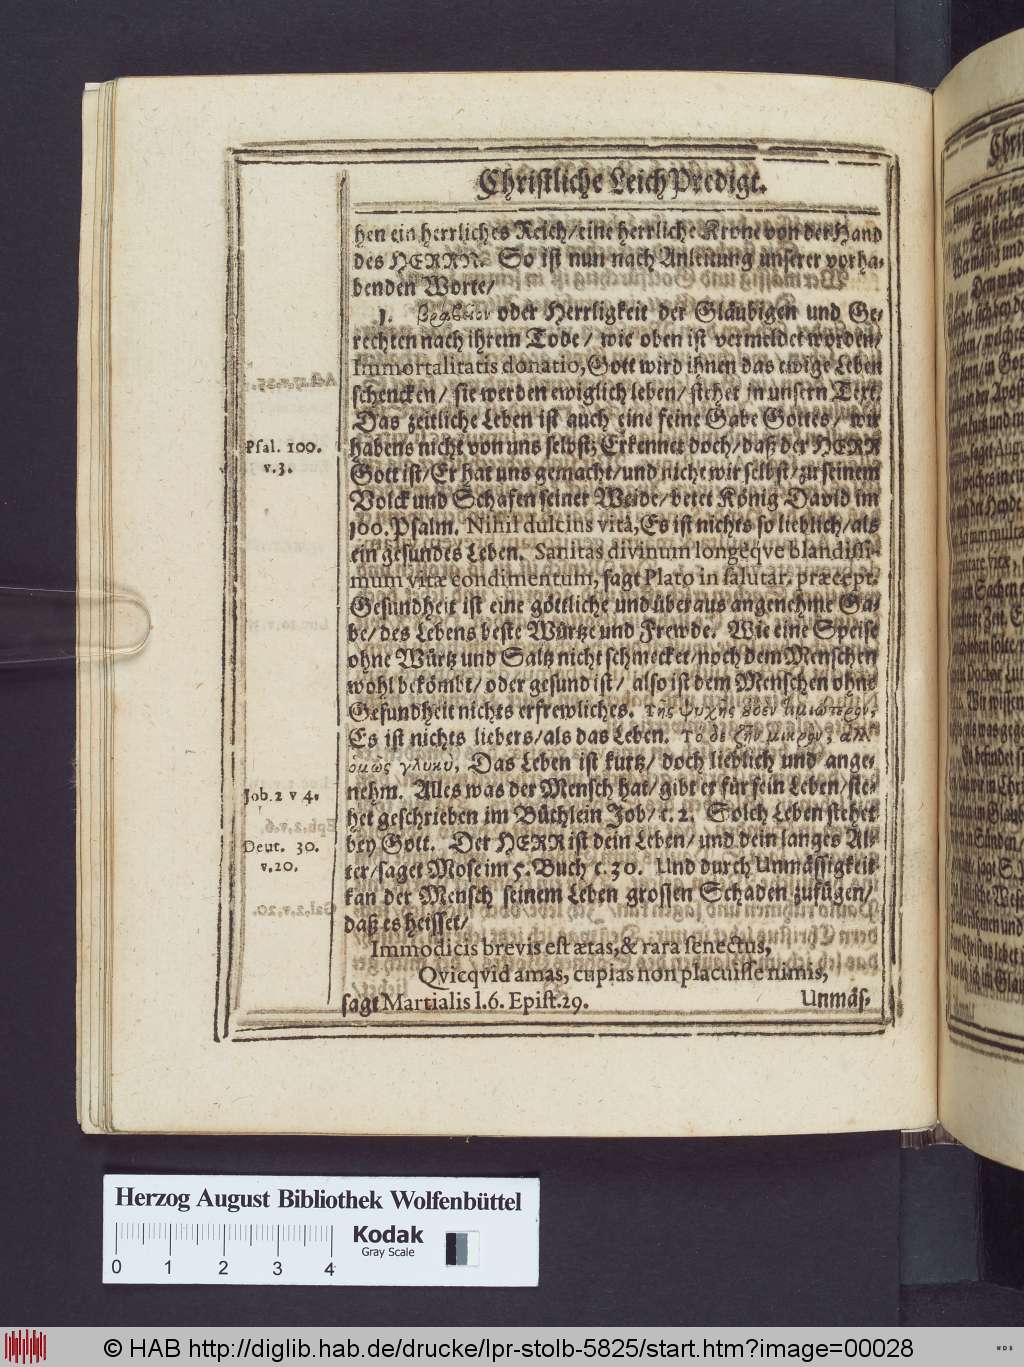 Christliche LeichPredigt.
hen ein herrliches Reich/eine herrliche Krone von der Hand
des HERRN. So ist nun nach Anleitung unserer vorha-
benden Worte/
1. βραβεῖον oder Herrligkeit der Gläubigen und Ge-
rechten nach ihrem Tode/ wie oben ist vermeldet worden/
Immortalitatis donatio, Gott wird ihnen das ewige Leben
schencken/ sie werden ewiglich leben/ stehet in unsern Text.
Das zeitliche Leben ist auch eine feine Gabe Gottes/ wir
habens nicht von uns selbst; Erkennet doch/daß der HERR
Gott ist/Er hat uns gemacht/und nicht wir selbst/zu seinem
Volck und Schafen seiner Weide/betet König David im
100. Psalm. Nihil dulcius vitâ, Es ist nichts so lieblich/als
ein gesundes Leben. Sanitas divinum longeqve blandissi-
mum vitæ condimentum, sagt Plato in salutar. præcept.
Gesundheit ist eine göttliche und überaus angenehme Ga-
be/des Lebens beste Würtze und Frewde. Wie eine Speise
ohne Würtz und Saltz nicht schmecket/noch dem Menschen
wohl bekömbt/oder gesund ist/ also ist dem Menschen ohne
Gesundheit nichts erfrewliches. τῆς ψυχῆς ουδὲν τιμιώτερον,
Es ist nichts liebers/als das Leben. Τὸ δὲ ζῆν μικρὸν, ἀλλ'
ὁμῶς γλυκὺ, Das Leben ist kurtz/ doch lieblich und ange-
nehm. Alles was der Mensch hat/gibt er für sein Leben/ste-
het geschrieben im Büchlein Job/ c. 2. Solch Leben stehet
bey Gott. Der HERR ist dein Leben/und dein langes Al-
ter/saget Mose im 5. Buch c. 30. Und durch Unmässigkeit
kan der Mensch seinem Leben grossen Schaden zufügen/
daß es heisset/
Immodicis brevis est ætas, & rara senectus,
Qvicqvid amas, cupias non placuisse nimis,
sagt Martialis l. 6. Epist. 29.
Unmäs-
Psal. 100.
v. 3.
Job. 2 v 4.
Deut. 30.
v. 20.
Herzog August Bibliothek Wolfenbüttel
Kodak
Gray Scale
0 1 2 3 4
© HAB http://diglib.hab.de/drucke/lpr-stolb-5825/start.htm?image=00028